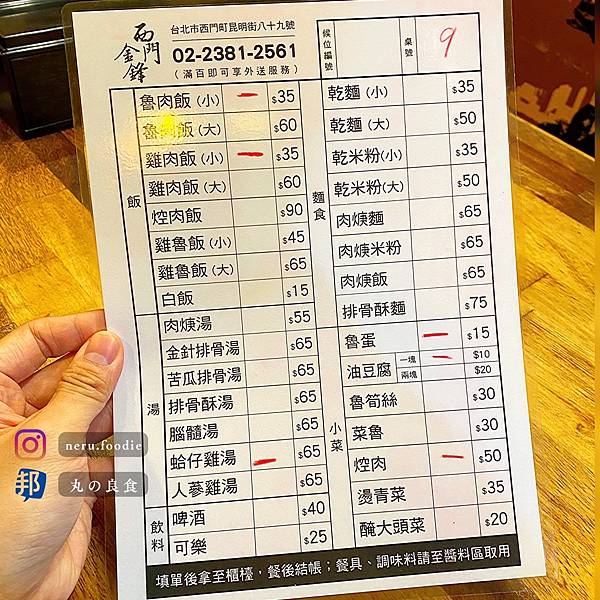 西門
金鋒
台北市西門町昆明街八十九號
02-2381-2561
（滿百即可享外送服務）
候位編號
桌號
9
飯
魯肉飯(小) $35
魯肉飯(大) $60
雞肉飯(小) $35
雞肉飯(大) $60
焢肉飯 $90
雞魯飯(小) $45
雞魯飯(大) $65
白飯 $15
湯
肉焿湯 $55
金針排骨湯 $65
苦瓜排骨湯 $65
排骨酥湯 $65
腦髓湯 $65
蛤仔雞湯 $65
人蔘雞湯 $65
飲料
啤酒 $40
可樂 $25
麵食
乾麵(小) $35
乾麵(大) $50
乾米粉(小) $35
乾米粉(大) $50
肉焿麵 $65
肉焿米粉 $65
肉焿飯 $65
排骨酥麵 $75
小菜
魯蛋 $15
油豆腐 一塊 $10
兩塊 $20
魯筍絲 $30
菜魯 $30
焢肉 $50
燙青菜 $35
醃大頭菜 $20
填單後拿至櫃檯，餐後結帳；餐具、調味料請至醬料區取用
neru.foodie
邦
丸の良食